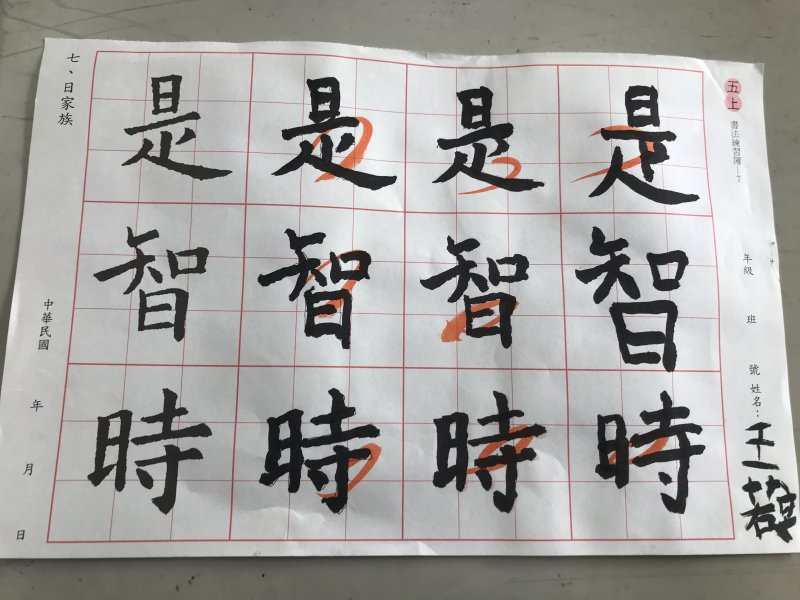 五上
書法練習簿—7
年級 班 號 姓名：
是智時
是智時
是智時
是智時
七、日家族
中華民國 年 月 日